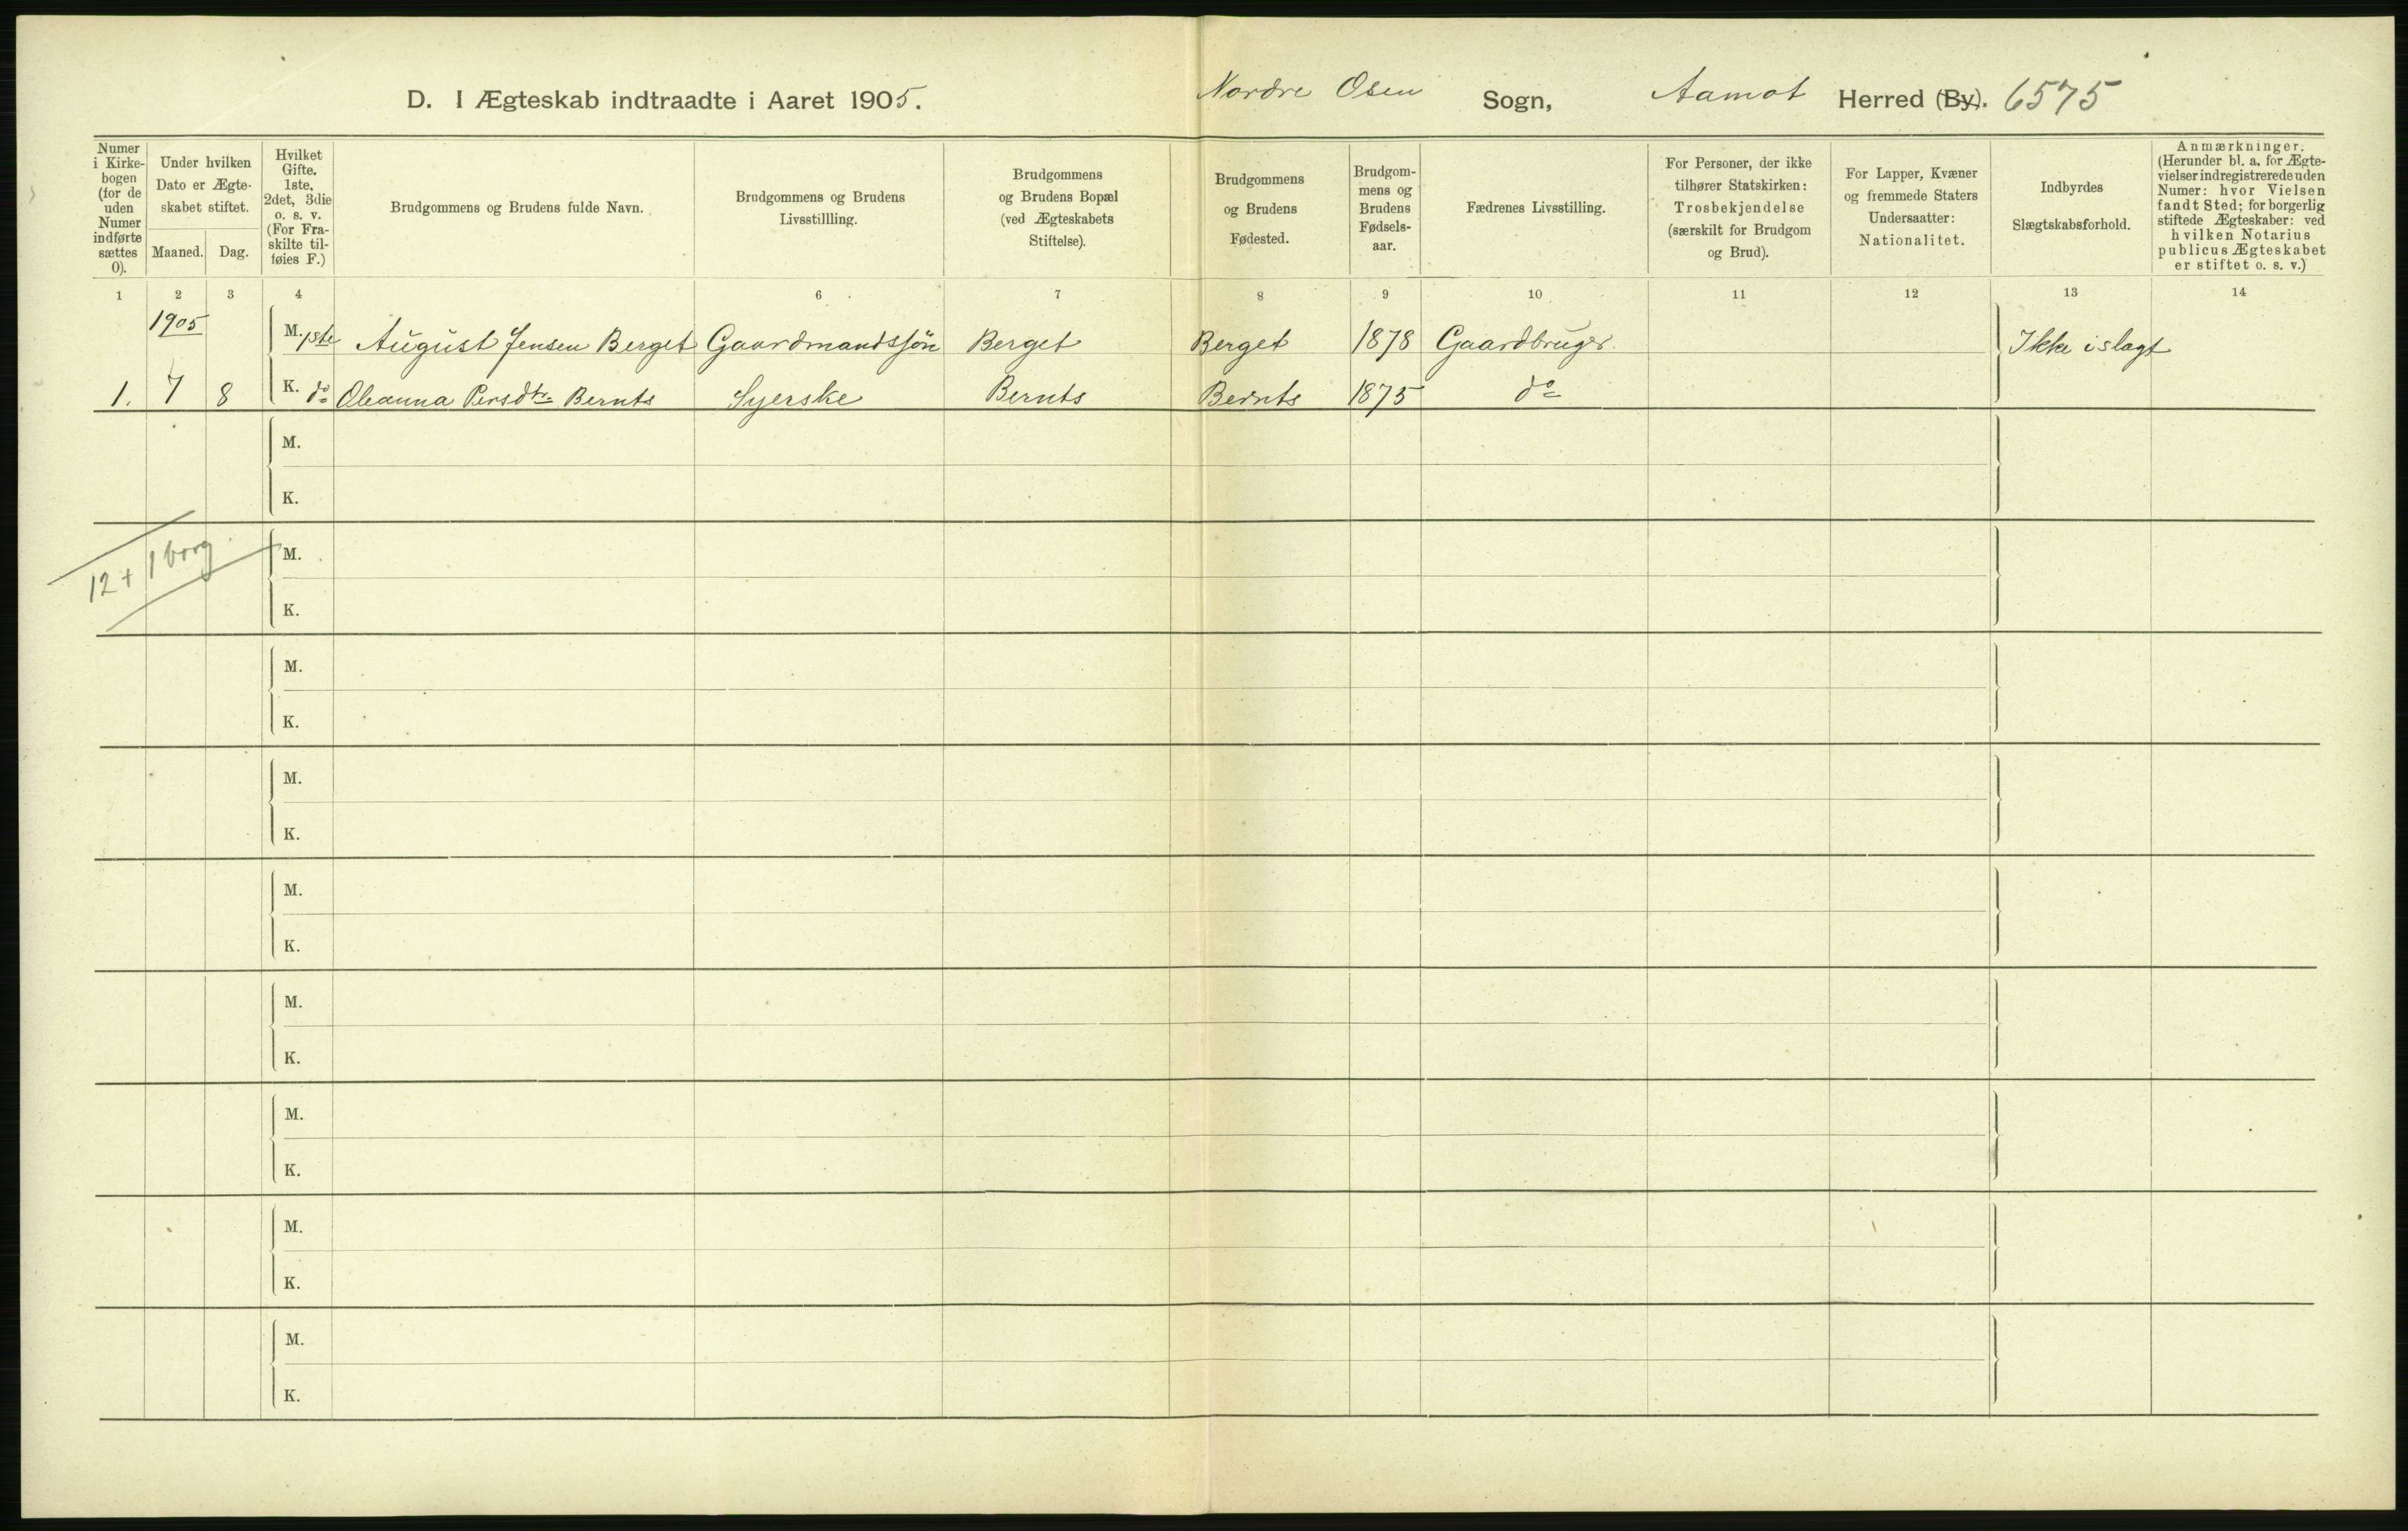 D. I Ægteskab indtraadte i Aaret 1905.
Nordre Osen Sogn, Aamot Herred (By). 6575
Numer i Kirke- bogen (for de uden Numer indførte sættes 0).
Under hvilken Dato er Ægte- skabet stiftet.
Maaned. Dag.
Hvilket Gifte. 1ste, 2det, 3die o. s. v. (For Fra- skilte til- føies F.)
Brudgommens og Brudens fulde Navn.
Brudgommens og Brudens Livsstillling.
Brudgommens og Brudens Bopæl (ved Ægteskabets Stiftelse).
Brudgommens og Brudens Fødested.
Brudgom- mens og Brudens Fødsels- aar.
Fædrenes Livsstilling.
For Personer, der ikke tilhører Statskirken: Trosbekjendelse (særskilt for Brudgom og Brud).
For Lapper, Kvæner og fremmede Staters Undersaatter: Nationalitet.
Indbyrdes Slægtskabsforhold.
Anmærkninger. (Herunder bl. a. for Ægte- vielser indregistrerede uden Numer: hvor Vielsen fandt Sted; for borgerlig stiftede Ægteskaber: ved hvilken Notarius publicus Ægteskabet er stiftet o. s. v.)
1 2 3 4 6 7 8 9 10 11 12 13 14
1905
M. 1ste August Jensen Berget Gaardmandssøn Berget Berget 1878 Gaardbruger. Ikke islagt
1. 7 8 K. do Oleanna Persdtr. Bernts Syerske Bernts Bernts 1875 do
M.
K.
12 + 1 borg.
M.
K.
M.
K.
M.
K.
M.
K.
M.
K.
M.
K.
M.
K.
M.
K.